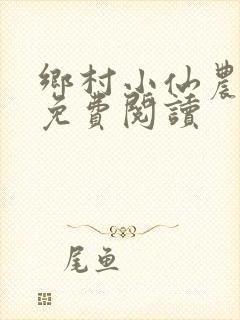 鄉村小仙農
免費閱讀
尾魚